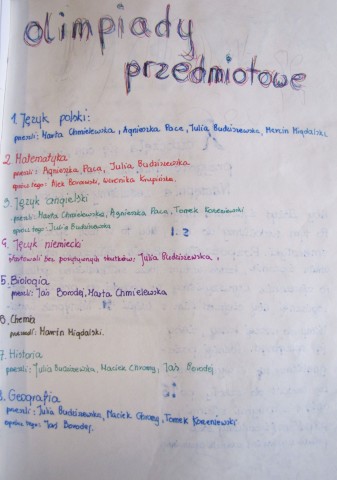 olimpiady
przedmiotowe
1. Język polski:
przeszli: Marta Chmielewska, Agnieszka Paca, Julia Budziszewska, Marcin Migdalski.
2. Matematyka
przeszli: Agnieszka Paca, Julia Budziszewska
oprócz tego: Alek Borowski, Weronika Krupińska.
3. Język angielski
przeszli: Marta Chmielewska, Agnieszka Paca, Tomek Korzeniewski
oprócz tego: Julia Budziszewska
4. Język niemiecki
startowali bez pozytywnych skutków: Julia Budziszewska.
5. Biologia
przeszli: Jaś Borodej, Marta Chmielewska
6. Chemia
przeszedł: Marcin Migdalski.
7. Historia
przeszli: Julia Budziszewska, Maciek Jaś Borodej
8. Geografia
przeszli: Julia Budziszewska, Maciek Tomek Korzeniewski
oprócz tego: Jaś Borodej.